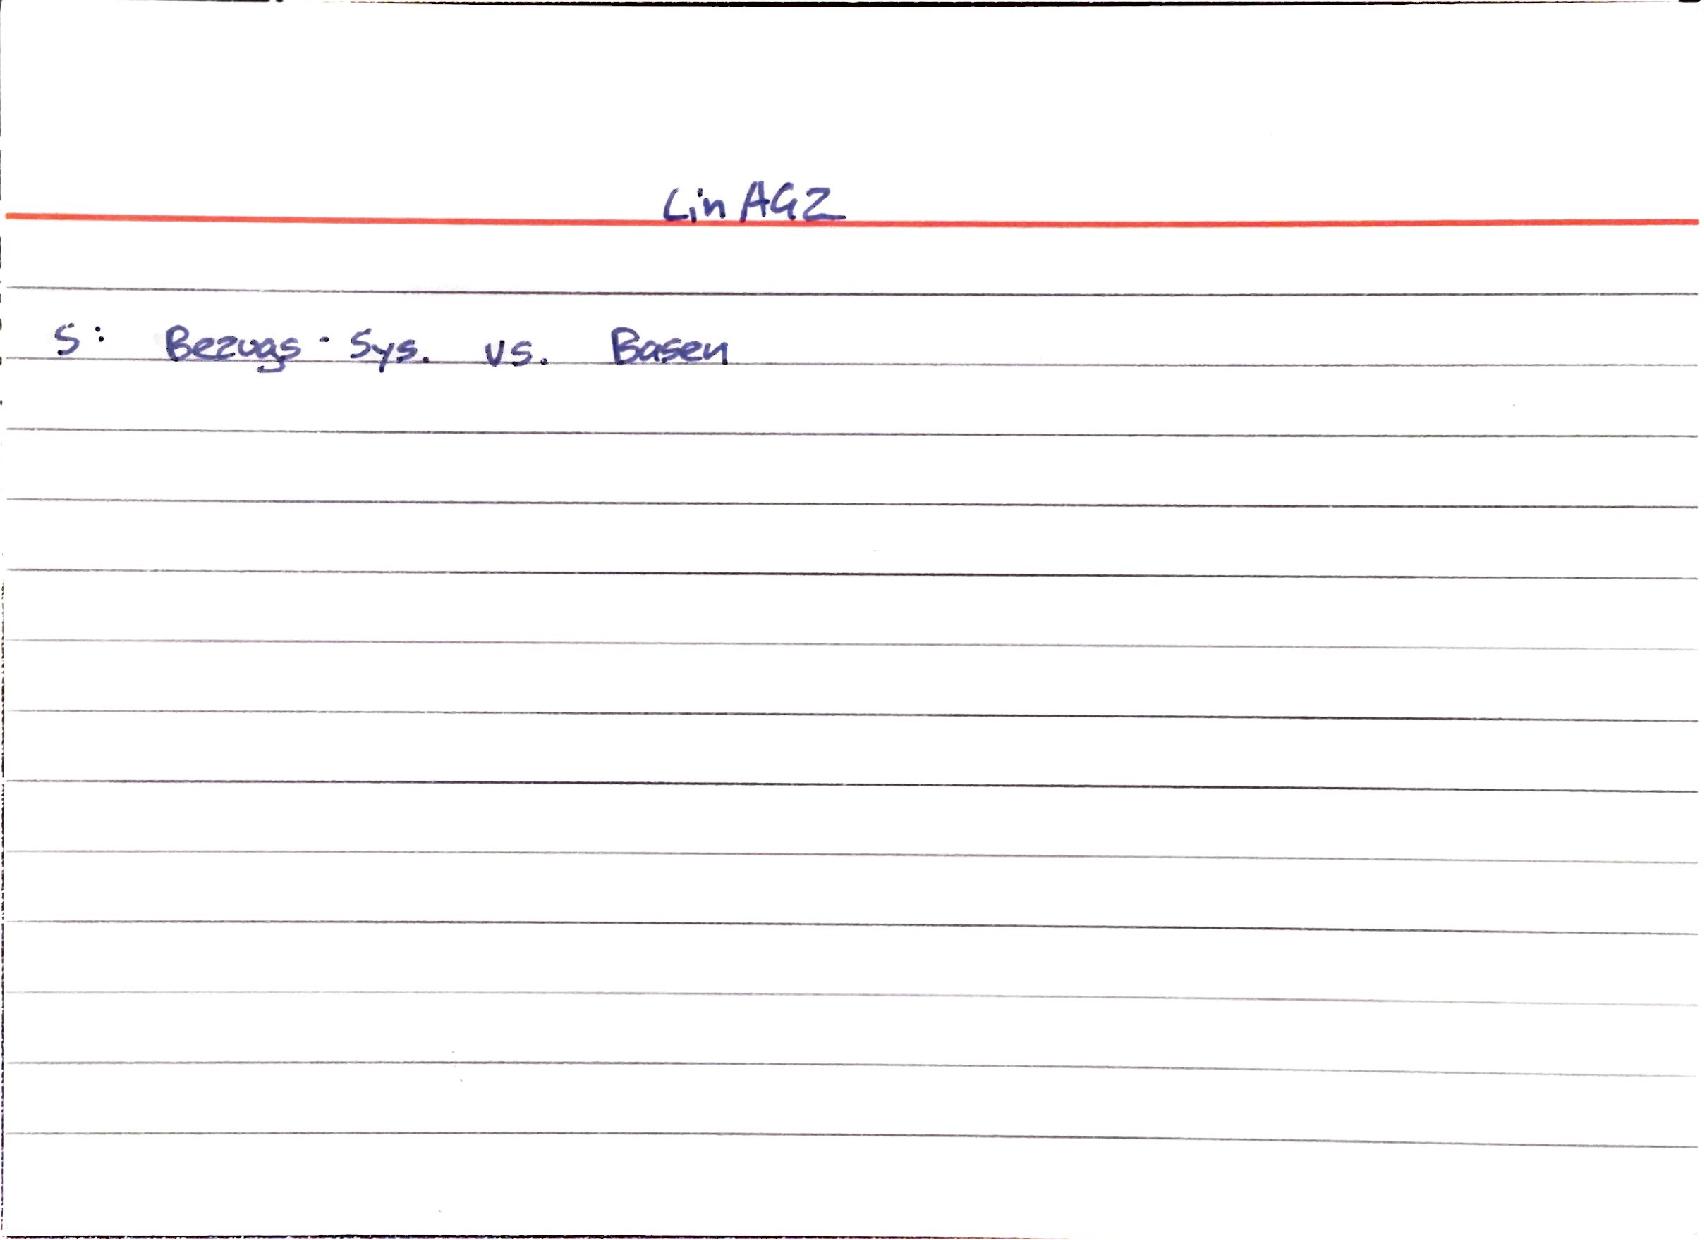 LinAG2
S: Bezugs-Sys. vs. Basen